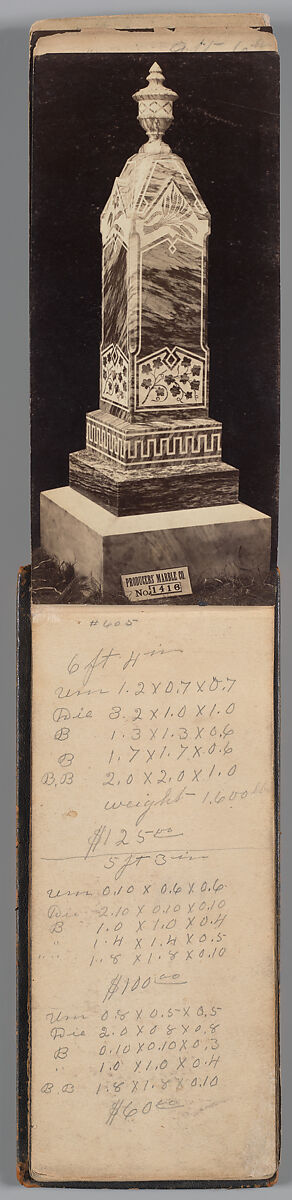 PRODUCERS' MARBLE CO.
No. 1416
#605
6 ft 4 in
Urn 1.2 x 0.7 x 0.7
Die 3.2 x 1.0 x 1.0
B 1.3 x 1.3 x 0.6
B 1.7 x 1.7 x 0.6
B.B 2.0 x 2.0 x 1.0
weight 1600 lb
$125 00
5 ft 3 in
Urn 0.10 x 0.6 x 0.6
Die 2.10 x 0.10 x 0.10
B 1.0 x 1.0 x 0.4
" 1.4 x 1.4 x 0.5
" " 1.8 x 1.8 x 0.10
$100 00
Urn 0.8 x 0.5 x 0.5
Die 2.0 x 0.8 x 0.8
B 0.10 x 0.10 x 0.3
" 1.0 x 1.0 x 0.4
B.B 1.8 x 1.8 x 0.10
$60 00